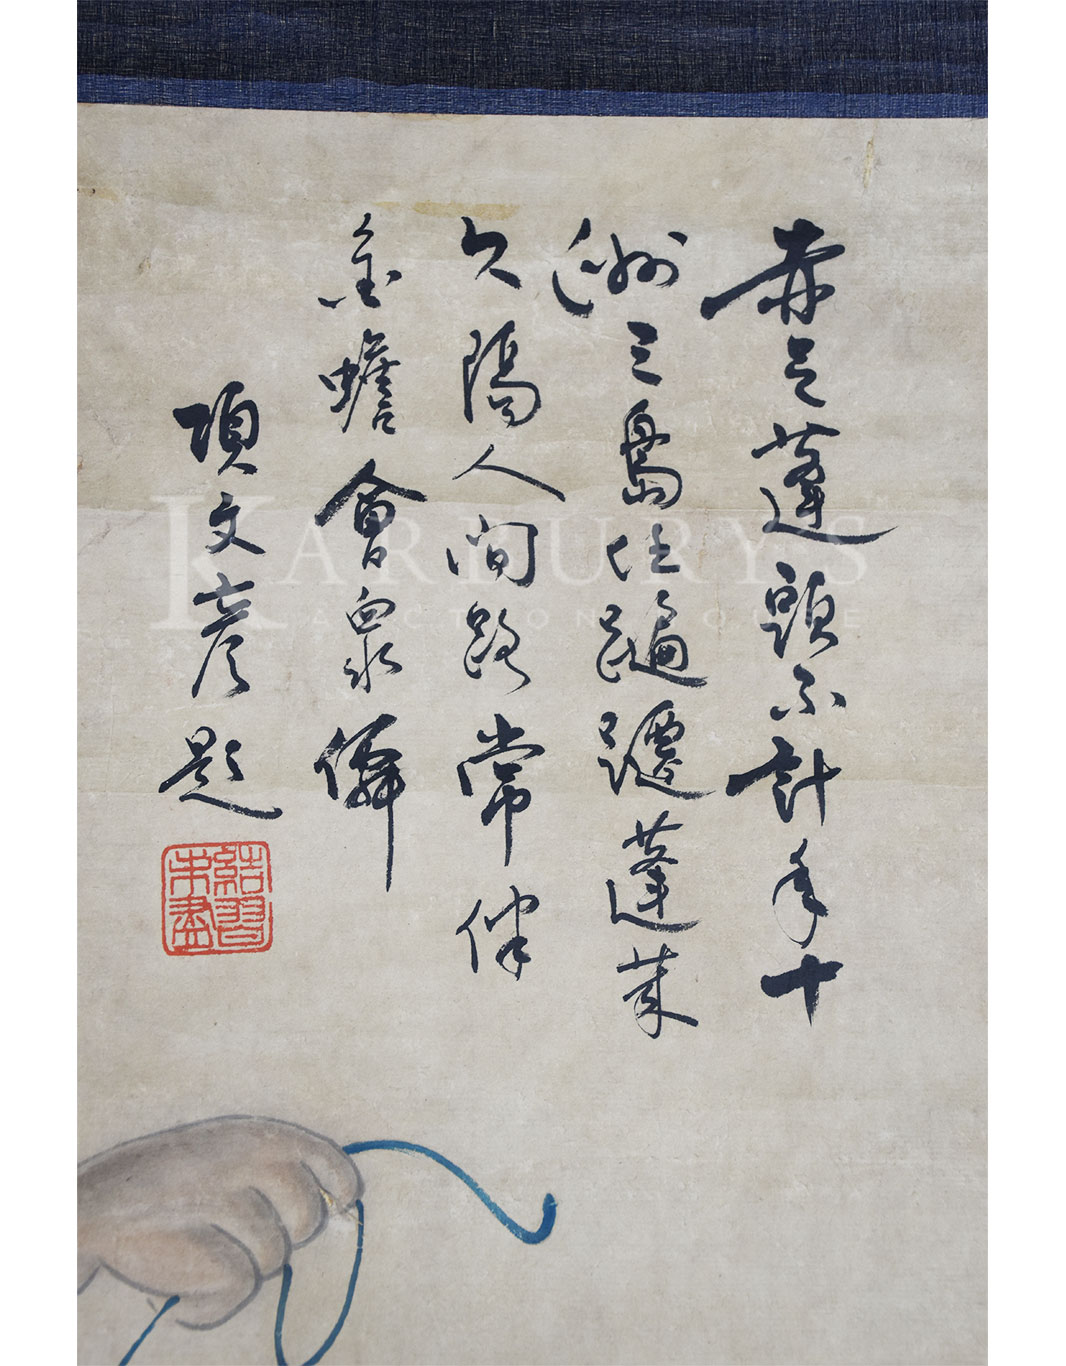 赤足蓬頭不計年十
洲三島任蹁躚蓬萊
久隔人間路常伴
金蟾會衆僊
項文彥題
結習未盡
KARBURYS
AUCTION HOUSE